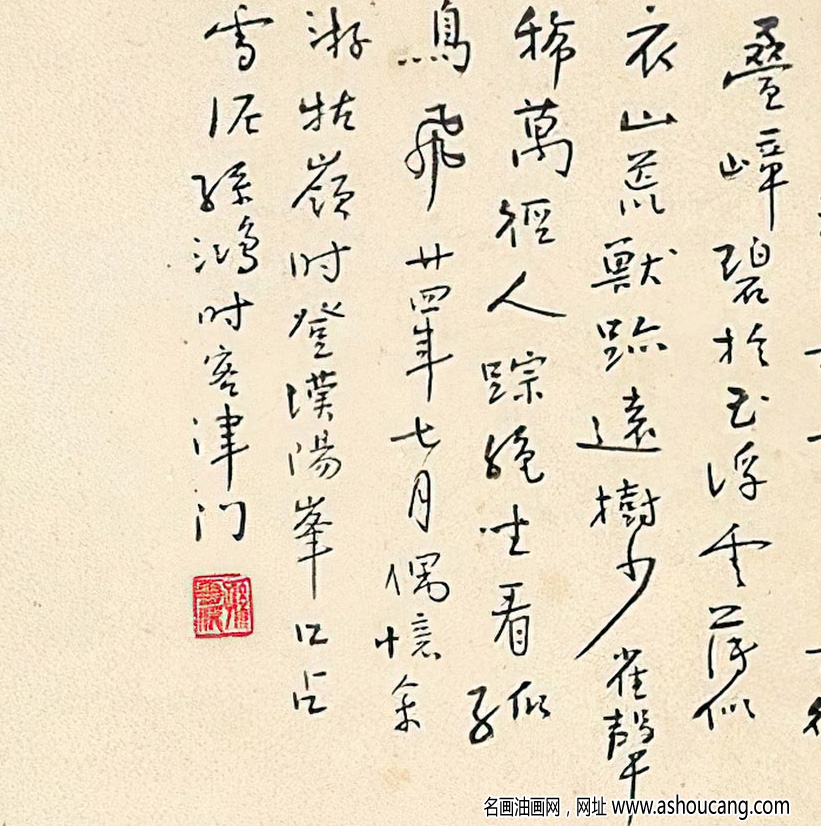 疊嶂碧於玉浮雲薄似
衣山荒獸跡遠樹少雀聲
稀萬徑人踪絕坐看孤
鳥飛廿四年七月偶憶余
游牯嶺时登漢陽峯口占
雪泥孫鴻时客津门
名画油画网，网址 www.ashoucang.com